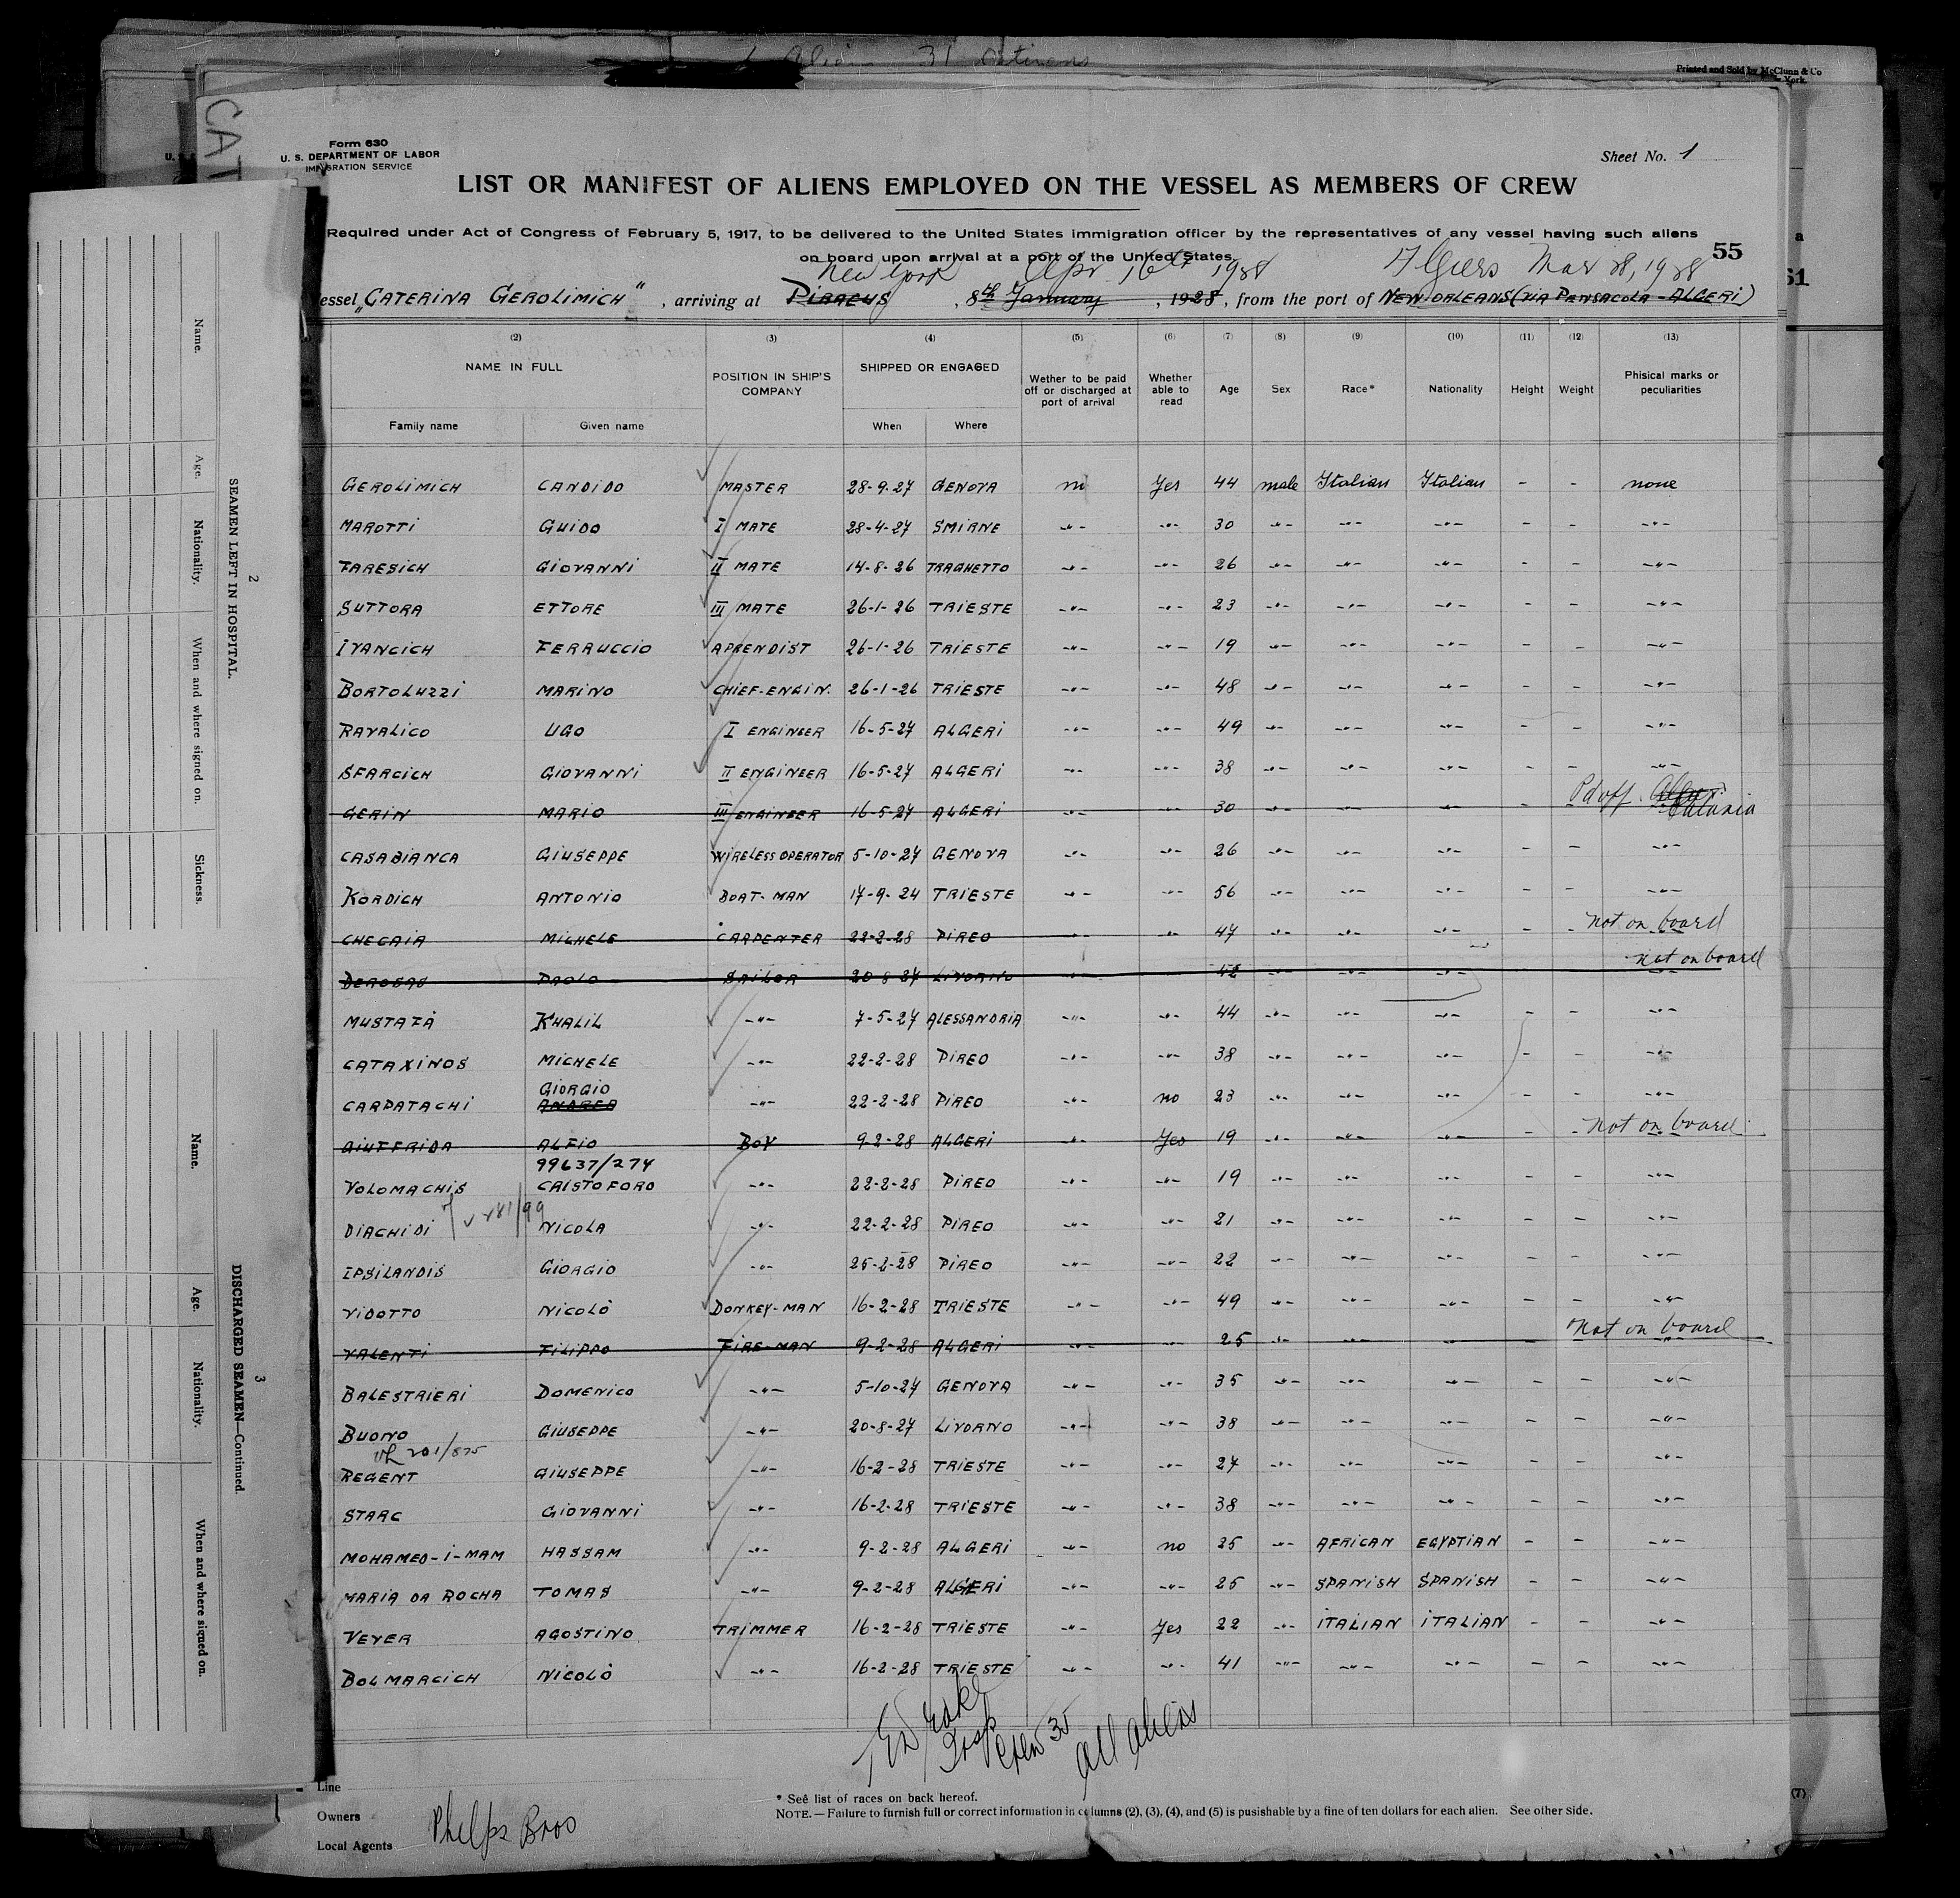 1 Alien 31 Citizens
Printed and Sold by McClunn & Co
York.
Form 630
U. S. DEPARTMENT OF LABOR
IMMIGRATION SERVICE
Sheet No. 1
LIST OR MANIFEST OF ALIENS EMPLOYED ON THE VESSEL AS MEMBERS OF CREW
Required under Act of Congress of February 5, 1917, to be delivered to the United States immigration officer by the representatives of any vessel having such aliens
on board upon arrival at a port of the United States
55
New York Apr 16th 1928 Algiers Mar 28, 1928
essel "CATERINA GEROLIMICH", arriving at PIRAEUS, 8th January, 1928, from the port of NEW ORLEANS (VIA PENSACOLA - ALGERI)
(2) (3) (4) (5) (6) (7) (8) (9) (10) (11) (12) (13)
NAME IN FULL POSITION IN SHIP'S COMPANY SHIPPED OR ENGAGED Wether to be paid off or discharged at port of arrival Whether able to read Age Sex Race* Nationality Height Weight Phisical marks or peculiarities
Family name Given name When Where
GEROLIMICH CANDIDO MASTER 28-9-27 GENOVA no Yes 44 male Italian Italian - - none
MAROTTI GUIDO I MATE 28-4-27 SMIRNE -"- -"- 30 -"- -"- -"- - - -"-
TARESICH GIOVANNI II MATE 14-8-26 TRAGHETTO -"- -"- 26 -"- -"- -"- - - -"-
SUTTORA ETTORE III MATE 26-1-26 TRIESTE -"- -"- 23 -"- -"- -"- - - -"-
IVANCICH FERRUCCIO APRENDIST 26-1-26 TRIESTE -"- -"- 19 -"- -"- -"- - - -"-
BORTOLUZZI MARINO CHIEF-ENGIN. 26-1-26 TRIESTE -"- -"- 48 -"- -"- -"- - - -"-
RAVALICO UGO I ENGINEER 16-5-27 ALGERI -"- -"- 49 -"- -"- -"- - - -"-
SFARCICH GIOVANNI II ENGINEER 16-5-27 ALGERI -"- -"- 38 -"- -"- -"- - - -"-
GERIN MARIO III ENGINEER 16-5-27 ALGERI -"- 30 -"- -"- -"- - Pd off Catania
CASABIANCA GIUSEPPE WIRELESS OPERATOR 5-10-27 GENOVA -"- -"- 26 -"- -"- -"- - - -"-
KORDICH ANTONIO BOAT-MAN 17-9-24 TRIESTE -"- -"- 56 -"- -"- -"- - - -"-
CHEGAIA MICHELE CARPENTER 22-2-28 PIREO -"- -"- 47 -"- -"- -"- - - not on board
DEROSAS PAOLO SAILOR 20-8-27 LIVORNO -"- 42 -"- -"- -"- not on board
MUSTAFÀ KHALIL -"- 7-5-27 ALESSANDRIA -"- -"- 44 -"- -"- -"- - - -"-
CATAXINOS MICHELE -"- 22-2-28 PIREO -"- -"- 38 -"- -"- -"- - - -"-
GIORGIO
CARPATACHI ANDREA -"- 22-2-28 PIREO -"- no 23 -"- -"- -"- - - -"-
GIUFFRIDA ALFIO BOY 9-2-28 ALGERI -"- Yes 19 -"- -"- -"- - - not on board
99637/274
VOLOMACHIS CRISTOFORO -"- 22-2-28 PIREO -"- -"- 19 -"- -"- -"- - - -"-
DIACHIDI NICOLA -"- 22-2-28 PIREO -"- -"- 21 -"- -"- -"- - - -"-
IPSILANDIS GIORGIO -"- 25-2-28 PIREO -"- -"- 22 -"- -"- -"- - - -"-
VIDOTTO NICOLÒ DONKEY-MAN 16-2-28 TRIESTE -"- -"- 49 -"- -"- -"- - - -"-
VALENTI FILIPPO FIRE-MAN 9-2-28 ALGERI -"- -"- 25 -"- -"- -"- - not on board
BALESTRIERI DOMENICO -"- 5-10-27 GENOVA -"- -"- 35 -"- -"- -"- - - -"-
BUONO GIUSEPPE -"- 20-8-27 LIVORNO -"- -"- 38 -"- -"- -"- - - -"-
201/875
REGENT GIUSEPPE -"- 16-2-28 TRIESTE -"- -"- 27 -"- -"- -"- - - -"-
STARC GIOVANNI -"- 16-2-28 TRIESTE -"- -"- 38 -"- -"- -"- - - -"-
MOHAMED-I-MAM HASSAM -"- 9-2-28 ALGERI -"- no 25 -"- AFRICAN EGYPTIAN - - -"-
MARIA DA ROCHA TOMAS -"- 9-2-28 ALGERI -"- -"- 25 -"- SPANISH SPANISH - - -"-
VEVER AGOSTINO TRIMMER 16-2-28 TRIESTE -"- Yes 22 -"- ITALIAN ITALIAN - - -"-
BOLMARCICH NICOLÒ -"- 16-2-28 TRIESTE -"- -"- 41 -"- -"- -"- - - -"-
Insp
Crew 35
all aliens
Line
* See list of races on back hereof.
Owners
NOTE.—Failure to furnish full or correct information in columns (2), (3), (4), and (5) is pusishable by a fine of ten dollars for each alien. See other side.
Local Agents Phelps Bros
2
SEAMEN LEFT IN HOSPITAL.
Name. Age. Nationality. When and where signed on. Sickness.
3
DISCHARGED SEAMEN—Continued.
Name. Age. Nationality. When and where signed on.
CAT
a
51
(7)